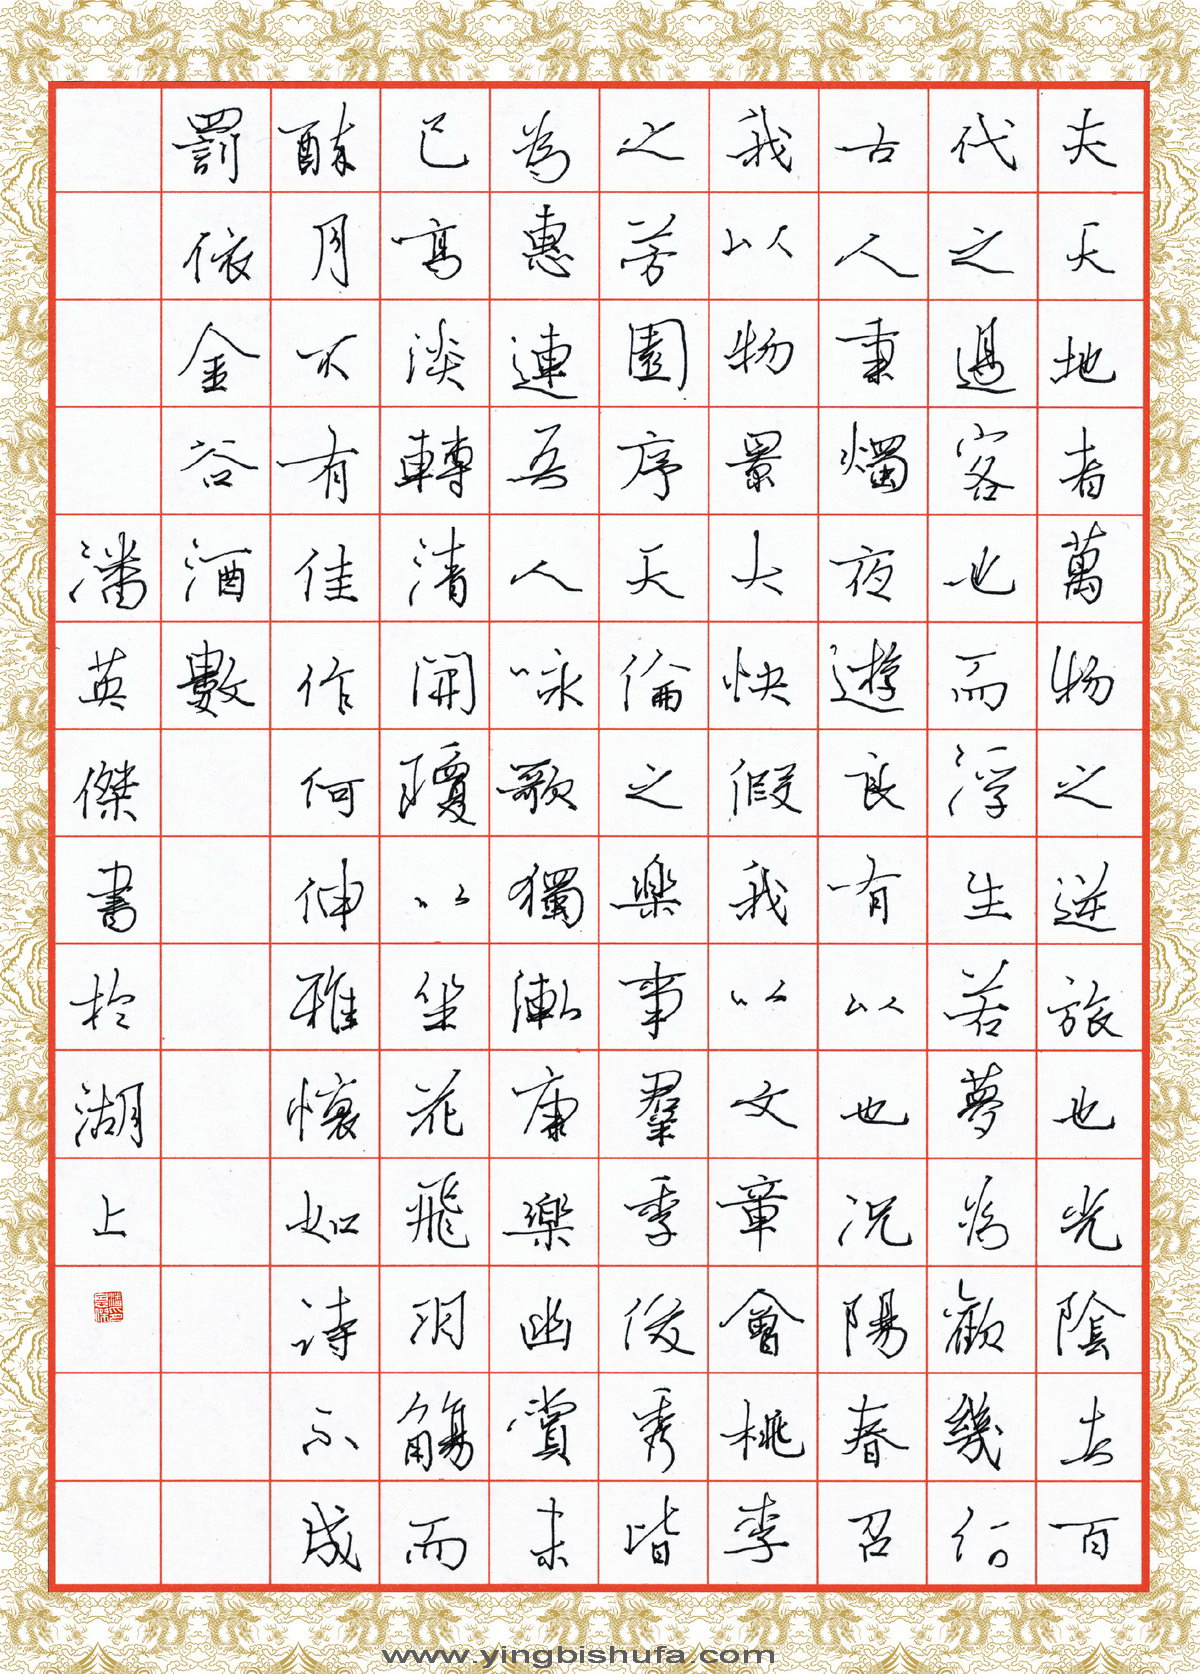 夫天地者萬物之逆旅也光陰者百
代之過客也而浮生若夢為歡幾何
古人秉燭夜遊良有以也況陽春召
我以物景大快假我以文章會桃李
之芳園序天倫之樂事羣季俊秀皆
為惠連吾人咏歌獨漸康樂幽賞未
已高淡轉清開瓊以坐花飛羽觴而
醉月不有佳作何伸雅懷如詩不成
罰依金谷酒數
潘英傑書於湖上
www.yingbishufa.com